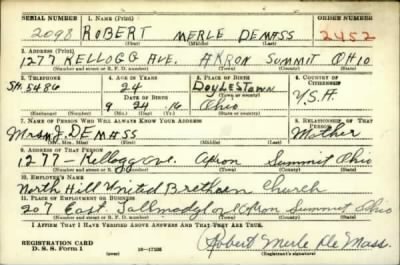 SERIAL NUMBER 1. NAME (Print) ORDER NUMBER
2098 ROBERT MERLE DEMASS 2452
(First) (Middle) (Last)
2. ADDRESS (Print)
1277 KELLOGG AVE. AKRON SUMMIT OHIO
(Number and street or R. F. D. number) (Town) (County) (State)
3. TELEPHONE 4. AGE IN YEARS 5. PLACE OF BIRTH 6. COUNTRY OF CITIZENSHIP
SH. 5486 24 DOYLESTOWN
DATE OF BIRTH (Town or county)
9 24 16 Ohio U.S.A.
(Mo.) (Day) (Yr.) (State or country)
7. NAME OF PERSON WHO WILL ALWAYS KNOW YOUR ADDRESS 8. RELATIONSHIP OF THAT PERSON
Mrs. J. DEMASS Mother
9. ADDRESS OF THAT PERSON
1277 - Kellogg Ave. Akron Summit Ohio
(Number and street or R. F. D. number) (Town) (County) (State)
10. EMPLOYER'S NAME
North Hill United Brethren Church
11. PLACE OF EMPLOYMENT OR BUSINESS
207 East Tallmadge Ave Akron Summit Ohio
(Number and street or R. F. D. number) (Town) (County) (State)
I AFFIRM THAT I HAVE VERIFIED ABOVE ANSWERS AND THAT THEY ARE TRUE.
REGISTRATION CARD
D. S. S. Form 1 (over) Robert Merle De Mass.
(Registrant's signature)